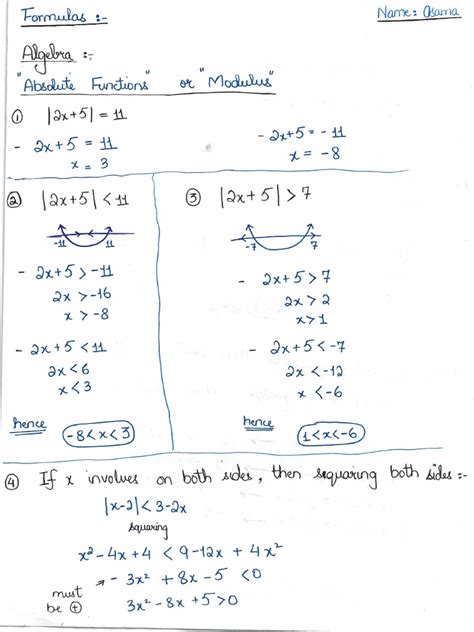 Formulas :-
Name: Osama
Algebra :-
"Absolute Functions" or "Modulus"
① |2x+5| = 11
- 2x+5 = 11
x = 3
- 2x+5 = -11
x = -8
② |2x+5| < 11
-11 11
- 2x+5 > -11
2x > -16
x > -8
- 2x+5 < 11
2x < 6
x < 3
hence -8 < x < 3
③ |2x+5| > 7
-7 7
- 2x+5 > 7
2x > 2
x > 1
- 2x+5 < -7
2x < -12
x < -6
hence 1 < x < -6
④ If x involves on both sides, then squaring both sides :-
|x-2| < 3-2x
squaring
x² - 4x + 4 < 9 - 12x + 4x²
- 3x² + 8x - 5 < 0
must be ⊕ 3x² - 8x + 5 > 0